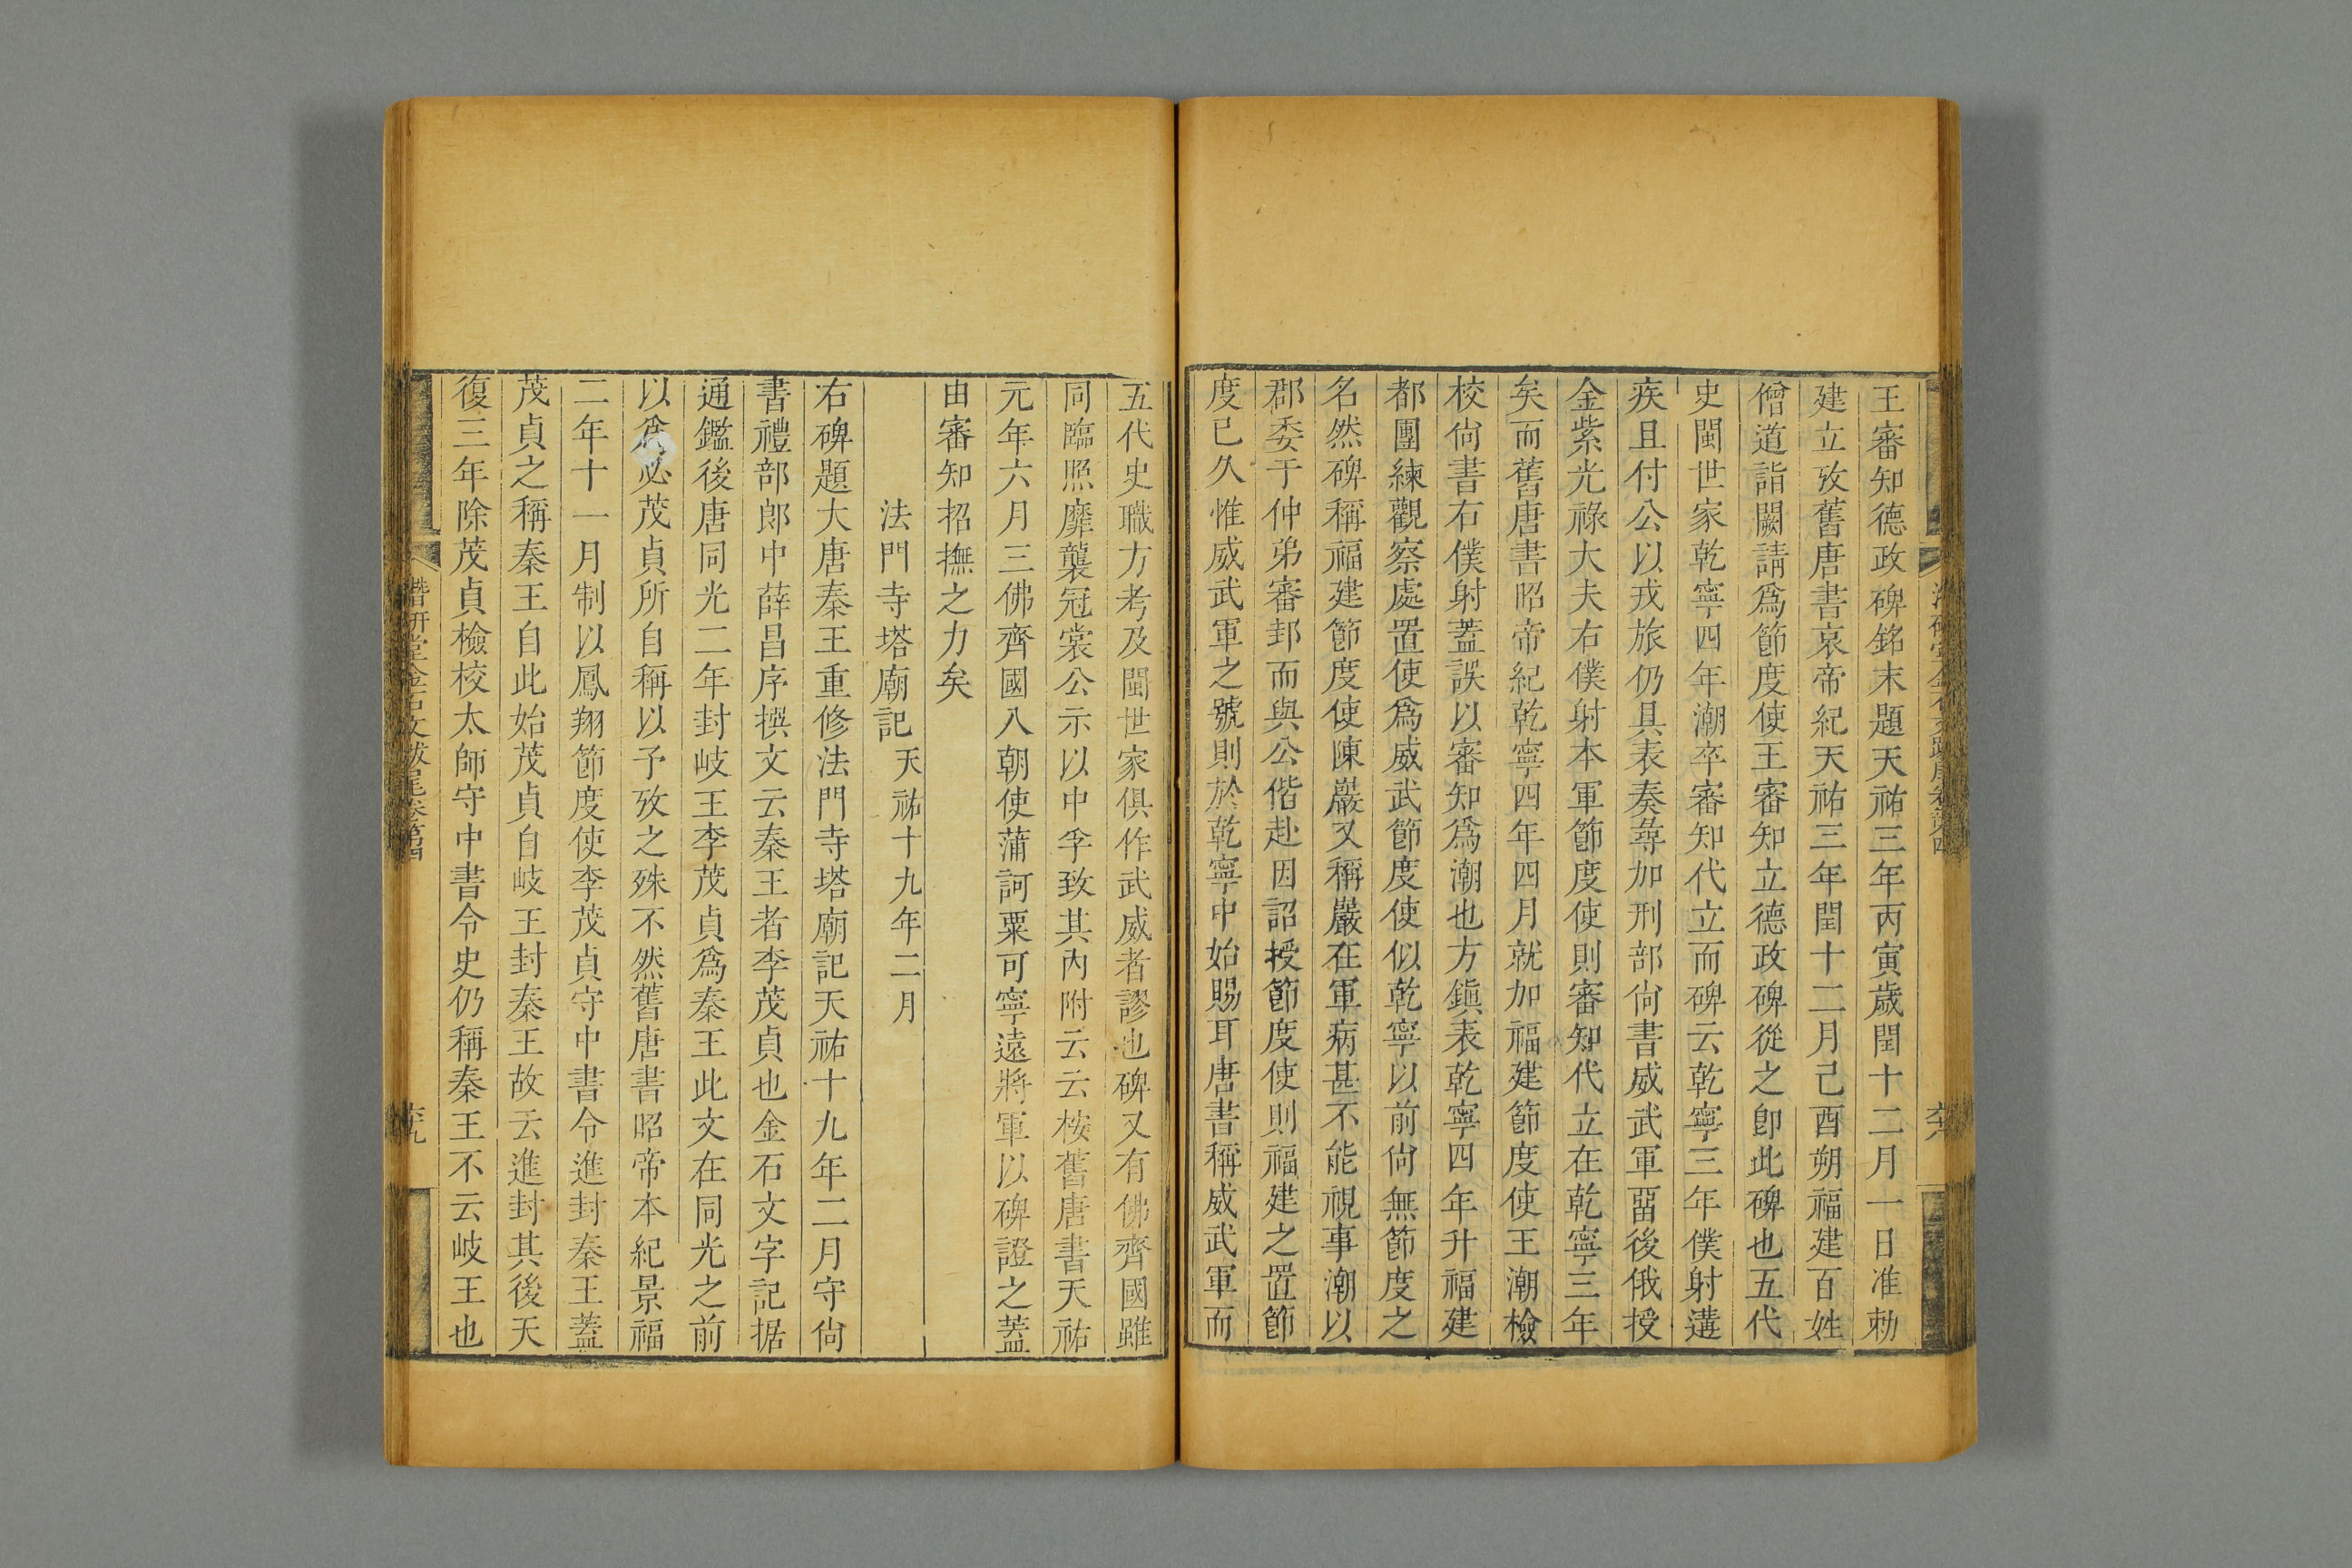 王審知德政碑銘末題天祐三年丙寅歲閏十二月一日准勅
建立攷舊唐書哀帝紀天祐三年閏十二月己酉朔福建百姓
僧道詣闕請爲節度使王審知立德政碑從之卽此碑也五代
史閩世家乾寧四年潮卒審知代立而碑云乾寧三年僕射遘
疾且付公以戎旅仍具表奏尋加刑部尙書威武軍畱後俄授
金紫光祿大夫右僕射本軍節度使則審知代立在乾寧三年
矣而舊唐書昭帝紀乾寧四年四月就加福建節度使王潮檢
校尙書右僕射蓋誤以審知爲潮也方鎭表乾寧四年升福建
都團練觀察處置使爲威武節度使似乾寧以前尙無節度之
名然碑稱福建節度使陳巖又稱巖在軍病甚不能視事潮以
郡委于仲弟審邽而與公偕赴因詔授節度使則福建之置節
度已久惟威武軍之號則於乾寧中始賜耳唐書稱威武軍而
五代史職方考及閩世家俱作武威者謬也碑又有佛齊國雖
同臨照靡襲冠裳公示以中孚致其內附云云桉舊唐書天祐
元年六月三佛齊國入朝使蒲訶粟可寧遠將軍以碑證之蓋
由審知招撫之力矣
法門寺塔廟記天祐十九年二月
右碑題大唐秦王重修法門寺塔廟記天祐十九年二月守尙
書禮部郞中薛昌序撰文云秦王者李茂貞也金石文字記据
通鑑後唐同光二年封岐王李茂貞爲秦王此文在同光之前
以爲必茂貞所自稱以予攷之殊不然舊唐書昭帝本紀景福
二年十一月制以鳳翔節度使李茂貞守中書令進封秦王蓋
茂貞之稱秦王自此始茂貞自岐王封秦王故云進封其後天
復三年除茂貞檢校太師守中書令史仍稱秦王不云岐王也
潛研堂金石文跋尾卷第四